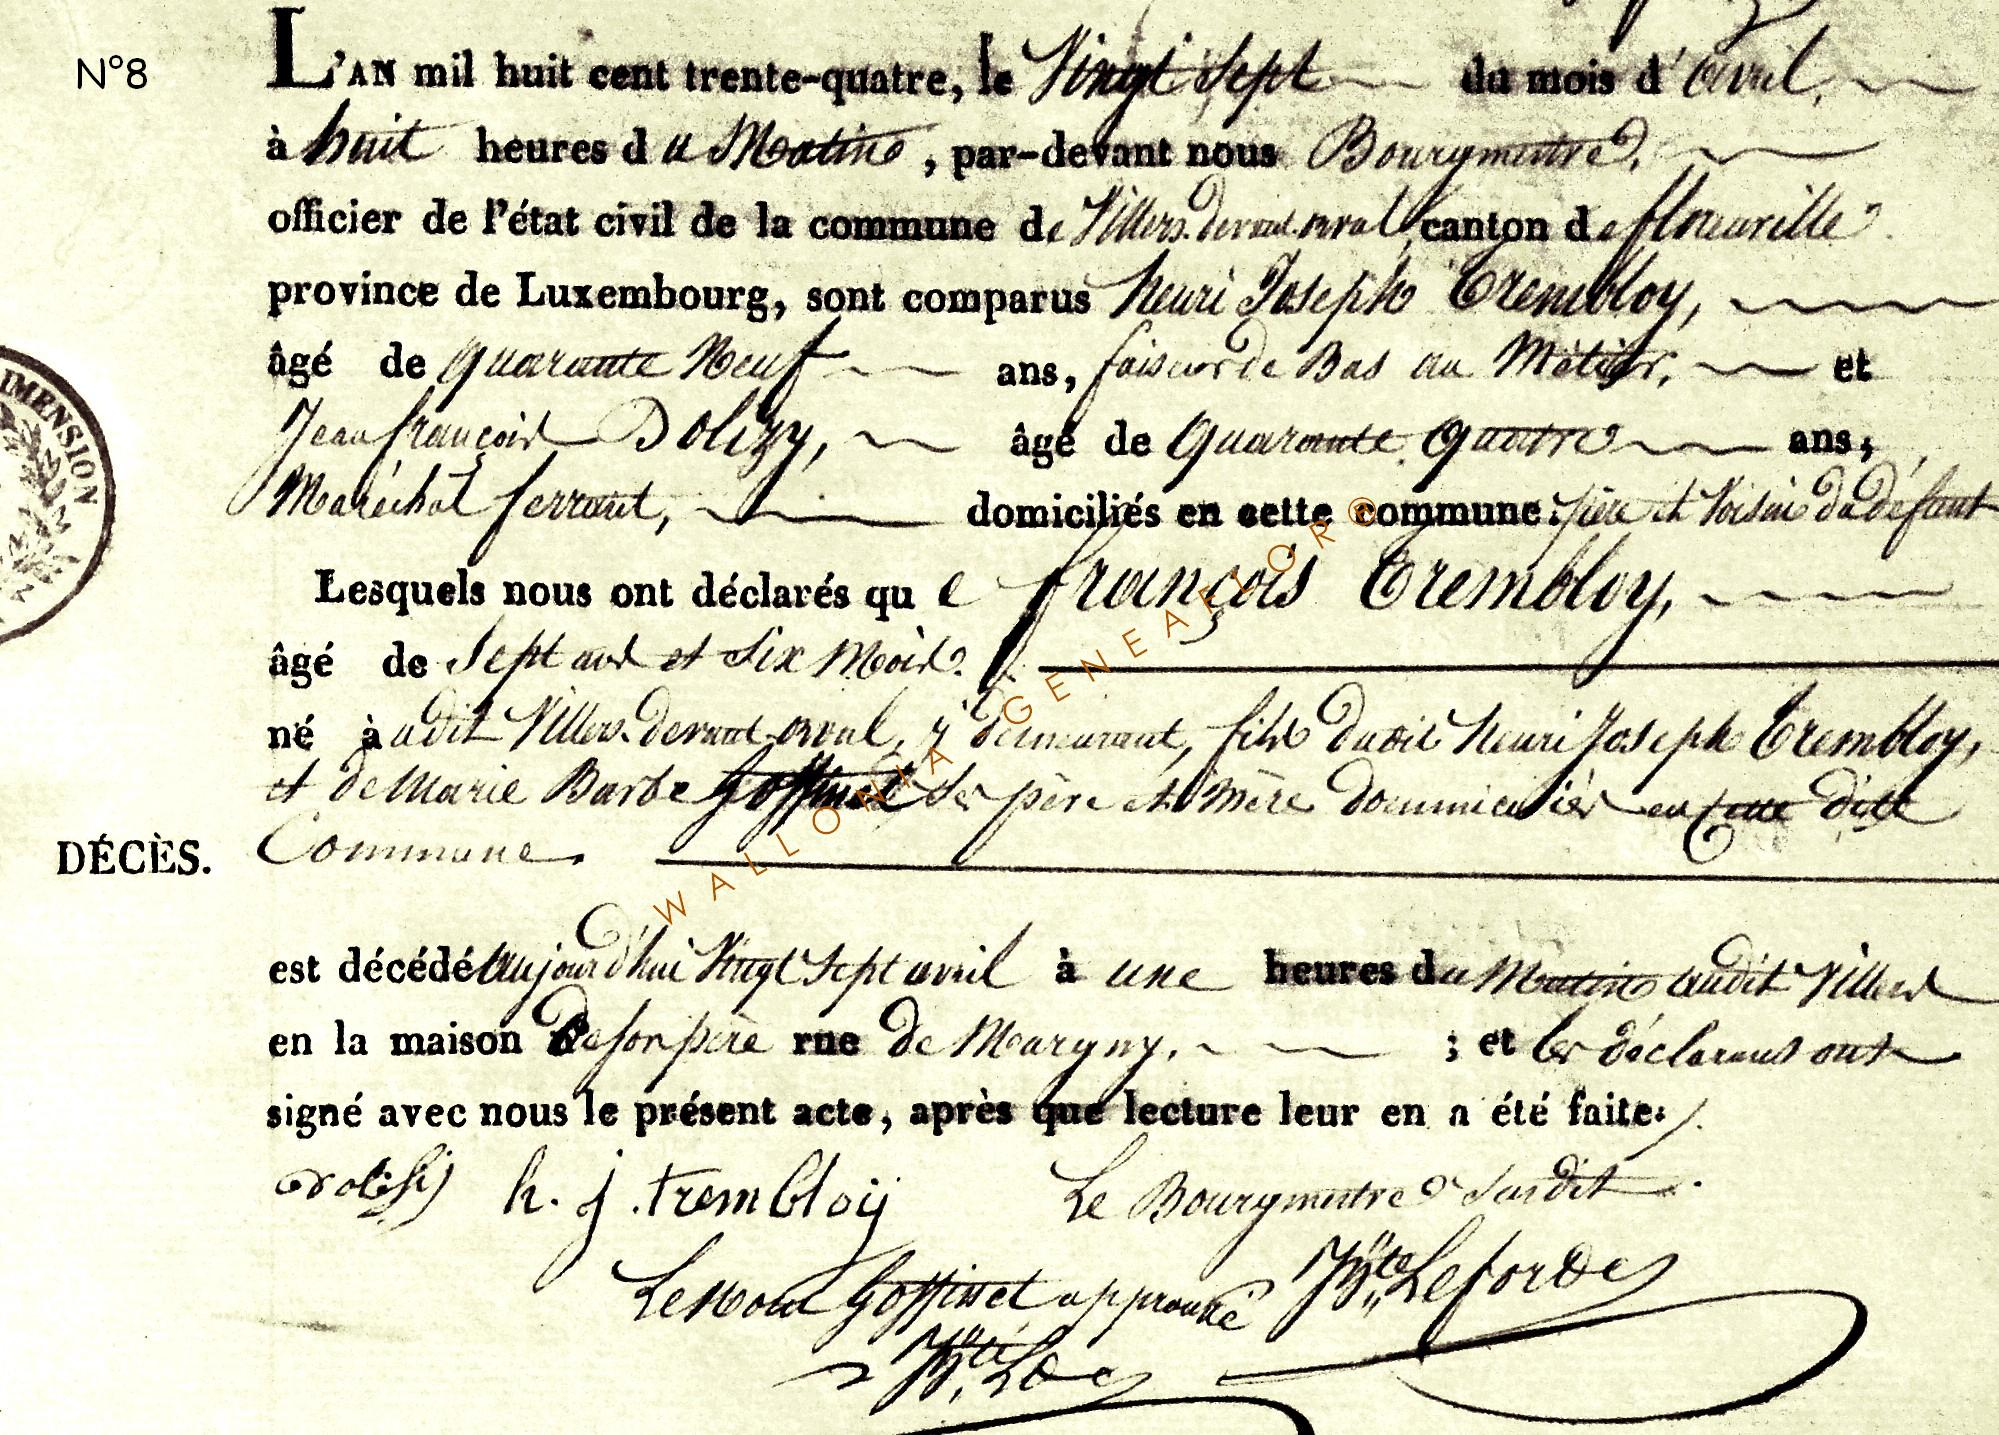 N°8
L'AN mil huit cent trente-quatre, le Vingt Sept du mois d'avril,
à huit heures du Matin, par-devant nous Bourgmestre,
officier de l'état civil de la commune de Villers-devant-orval, canton de florenville
province de Luxembourg, sont comparus henri Joseph Trembloy,
âgé de quarante Neuf ans, faiseur de Bas au Métier, et
Jean françois Dolizy, âgé de quarante quatre ans,
Maréchal ferrant, domiciliés en cette commune. père et Voisin du défunt
Lesquels nous ont déclarés que françois Trembloy,
âgé de Sept ans et Six Mois.
né à udit Villers-devant-orval, y demeurant, fils dudit henri Joseph Trembloy,
et de Marie Barbe Goffinet Ses père et Mère domiciliés en cette dite
Commune.
DÉCÈS.
est décédé aujourd'hui Vingt Sept avril à une heures du Matin audit Villers
en la maison de son père rue de Margny, ; et les déclarans ont
signé avec nous le présent acte, après que lecture leur en a été faite.
h. j. trembloy Le Bourgmestre Susdit
Le Nom Goffinet approuvé
IMENSION
WALLONIA GENEALOR ®